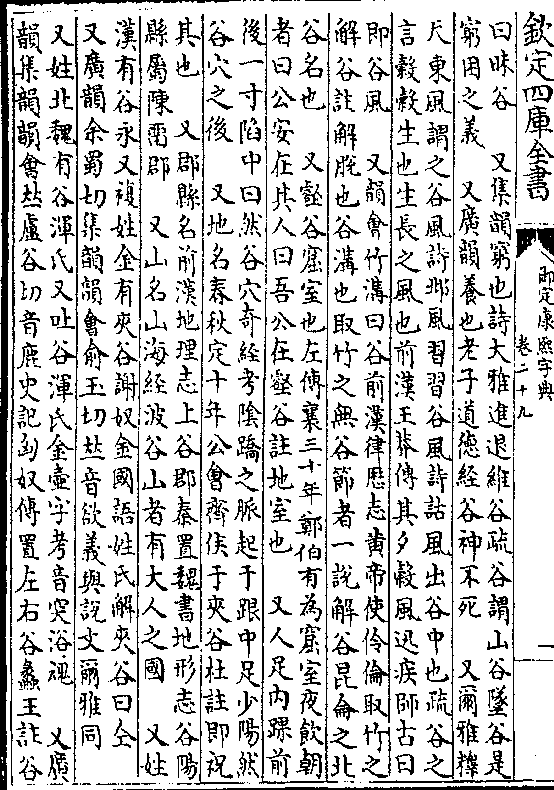 欽定四庫全書
御定康熙字典
卷二十九
曰昧谷　又集韻窮也詩大雅進退維谷疏谷謂山谷墜谷是
窮困之義　又廣韻養也老子道德經谷神不死　又爾雅釋
天東風謂之谷風詩邶風習習谷風詩詁風出谷中也疏谷之
言穀穀生也生長之風也前漢王莽傳其夕穀風迅疾師古曰
即谷風　又韻會竹溝曰谷前漢律歷志黄帝使伶倫取竹之
解谷註解脫也谷溝也取竹之無谷節者一說解谷昆侖之北
谷名也　又壑谷窟室也左傳襄三十年鄭伯有為窟室夜飲朝
者曰公安在其人曰吾公在壑谷註地室也　又人足内踝前
後一寸陷中曰然谷穴奇經考陰蹻之脈起于跟中足少陽然
谷穴之後　又地名春秋定十年公會齊侯于夾谷杜註即祝
其也　又郡縣名前漢地理志上谷郡秦置魏書地形志谷陽
縣屬陳留郡　又山名山海經波谷山者有大人之國　又姓
漢有谷永又複姓金有夾谷謝奴金國語姓氏解夾谷曰仝
又廣韻余蜀切集韻韻會俞玉切𠀤音欲義與說文爾雅同
又姓北魏有谷渾氏又吐谷渾氏金壺字考音突浴魂　又廣
韻集韻韻會𠀤盧谷切音鹿史記匈奴傳置左右谷蠡王註谷